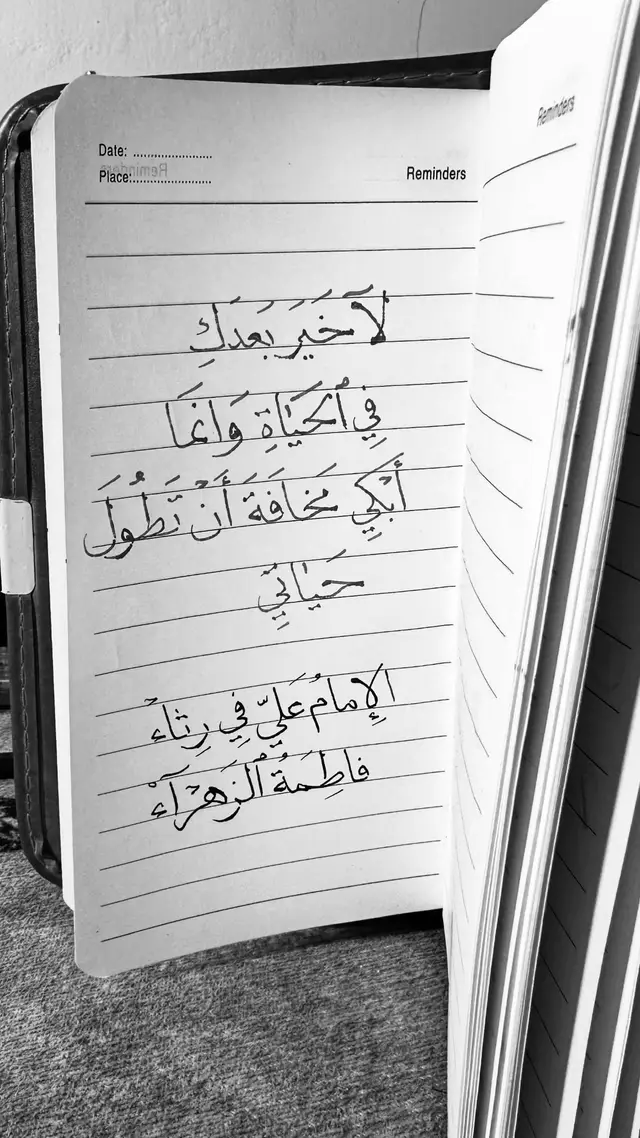 Date: ......................
Place:......................
Reminders
Reminders
لَا خَيْرَ بَعْدَكِ
فِي ٱلْحَيَاةِ وَانَمَا
أَبْكِي مَخَافَةَ أَنْ تَطُولَ
حَيَاتِي
الإِمامُ عَلَيّ فِي رِثاءْ
فاطِمَةُ ٱلزَهْرَآءْ